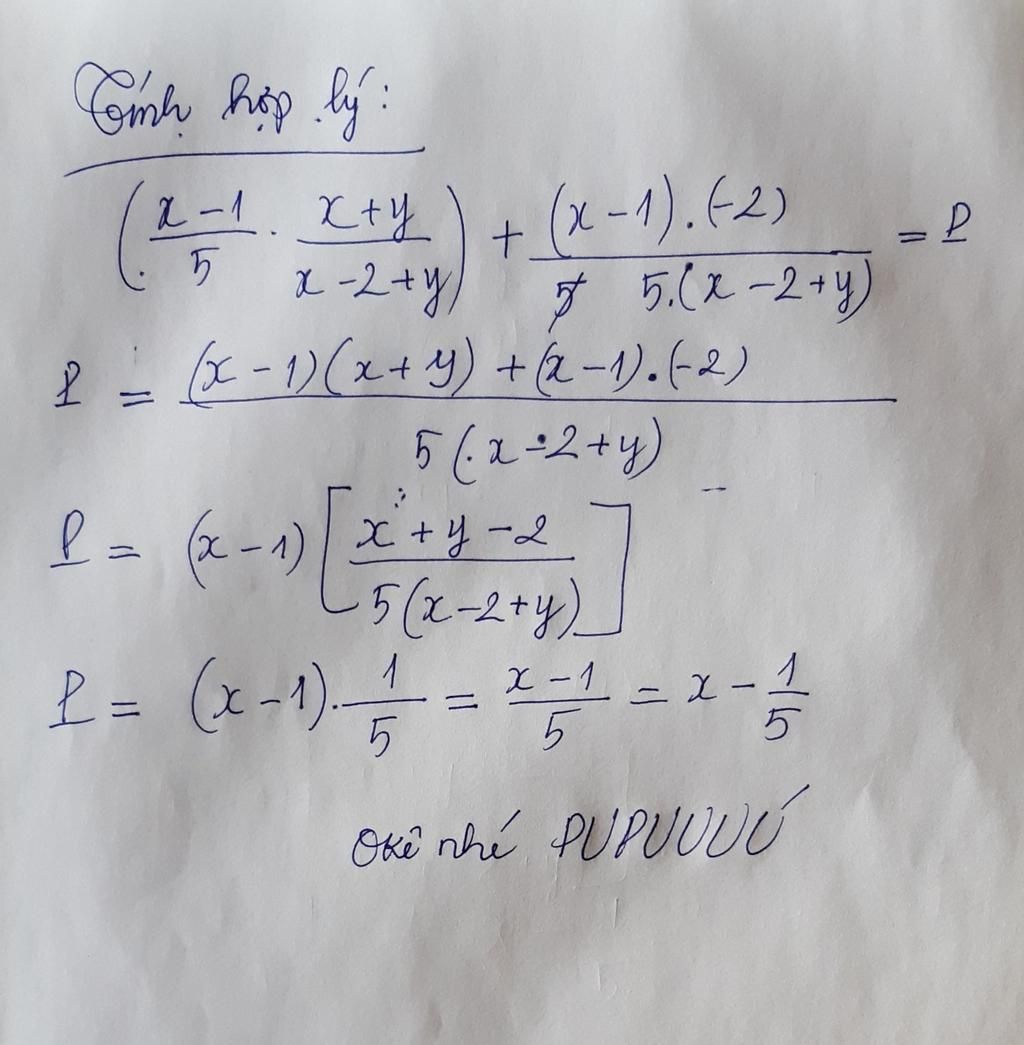 Tính hợp lý:
(x-1/5 . x+y/x-2+y) + (x-1).(-2)/5.(x-2+y) = P
P = (x-1)(x+y) + (x-1).(-2)/5(x-2+y)
P = (x-1)[x+y-2/5(x-2+y)]
P = (x-1).1/5 = x-1/5 = x - 1/5
Okê nhé PUPUUUÚ